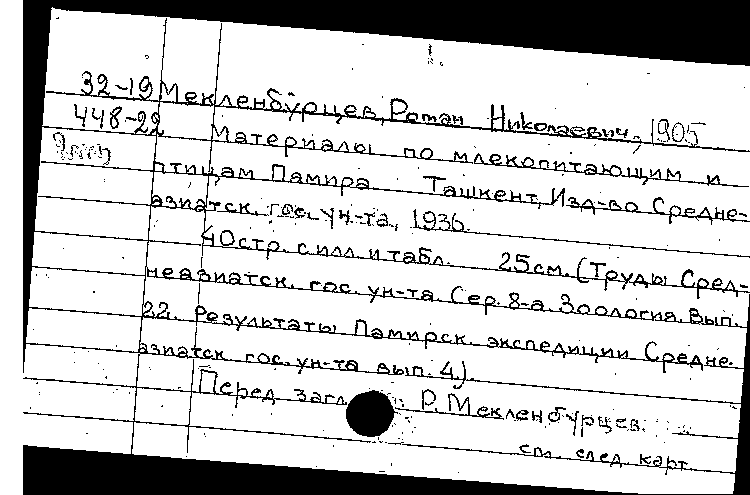 32-19 Мекленбурцев, Роман Николаевич, 1905
448-22 Материалы по млекопитающим и
птицам Памира Ташкент, Изд-во Средне-
азиатск. гос. ун-та, 1936.
40стр. с илл. и табл. 25см. (Труды Сред-
неазиатск. гос. ун-та. Сер. 8-а. Зоология. Вып.
22. Результаты Памирск. экспедиции Средне-
азиатск. гос. ун-та вып. 4.).
Перед загл. Р. Мекленбурцев.
см. след. карт.